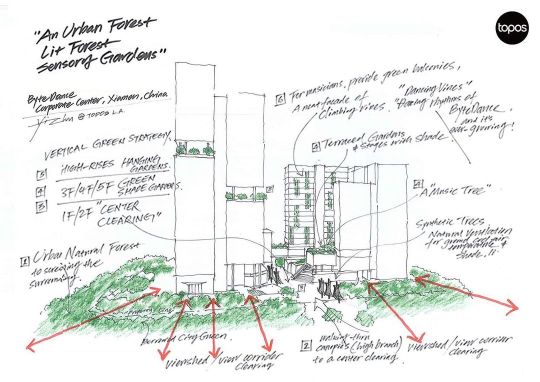 "An Urban Forest
Lit Forest
Sensory Gardens"
topos
ByteDance
Corporate Center, Xiamen, China
@ TOPOS L.A.
VERTICAL GREEN STRATEGY
5 HIGH-RISES HANGING GARDENS
4 3F/4F/5F GREEN
SHADE GARDENS
3 1F/2F "CENTER
CLEARING"
1 Urban Natural Forest
to the
surrounding
6 For musicians, provide green balconies,
A neat facade of
climbing vines.
"Dancing Vines"
rhythms of
ByteDance,
and it's
ever-growing!
5 Terraced Gardens
& Stages with Shade
4 A "Music Tree"
Synthetic Trees
Natural Ventilation
for ground cool air
&
Shade.
City Green
Viewshed/view corridor
clearing
2 walking thru
canopies (high branch)
to a center clearing
Viewshed/view corridor
clearing